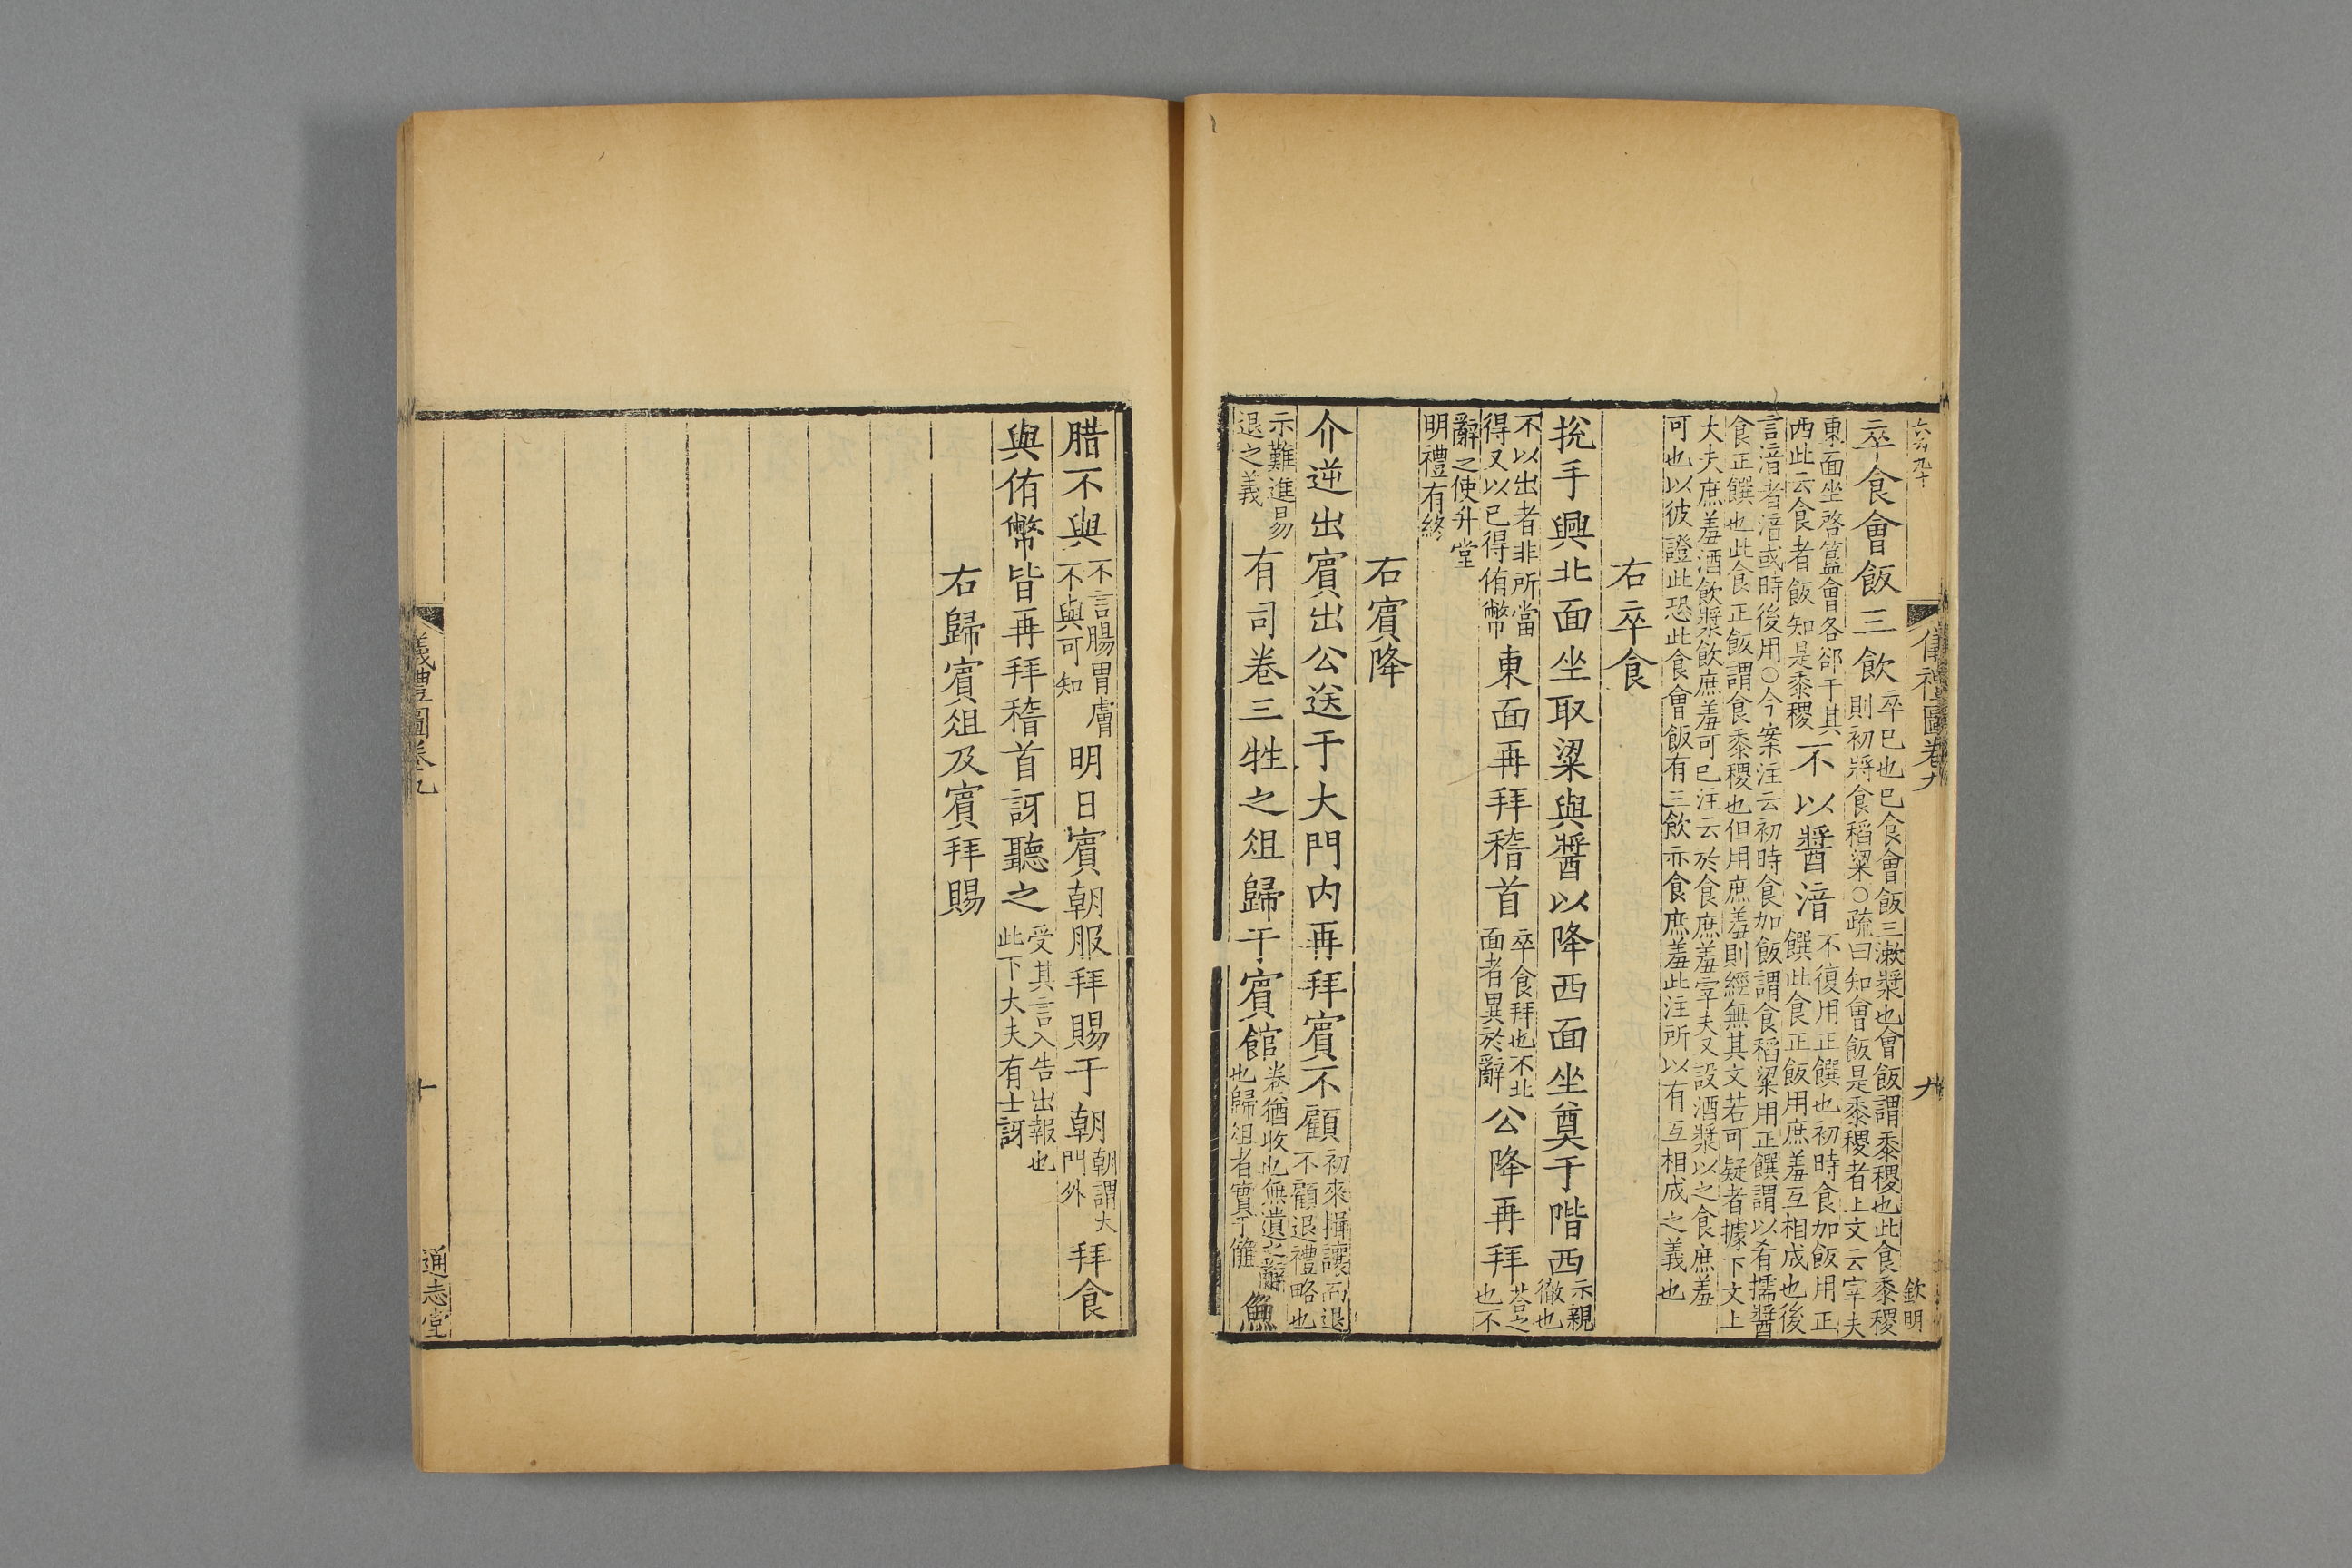 六百九十
儀禮圖卷九
九
欽明
卒食會飯三飲卒巳也巳食會飯三漱漿也會飯謂黍稷也此食黍稷則初將食稻粱○疏曰知會飯是黍稷者上文云宰夫
東面坐啓簋會各郤于其西此云食者飯知是黍稷不以醬湆不復用正饌也初時食加飯用正饌此食正飯用庶羞互相成也後
言湆者湆或時後用○今案注云初時食加飯謂食稻粱用正饌謂以肴擩醬食正饌也此食正飯謂食黍稷也但用庶羞則經無其文若可疑者據下文上
大夫庶羞酒飲漿飲庶羞可巳注云於食庶羞宰夫又設酒漿以之食庶羞可也以彼證此恐此食會飯有三飲亦食庶羞此注所以有互相成之義也
右卒食
挩手興北面坐取粱與醬以降西面坐奠于階西示親徹也
不以出者非所當得又以巳得侑幣東面再拜稽首卒食拜也不北面者異於辭公降再拜荅之也不
辭之使升堂明禮有終
右賓降
介逆出賓出公送于大門内再拜賓不顧初來揖讓而退不顧退禮略也
示難進易退之義有司卷三牲之俎歸于賓館卷猶收也無遺之辭也歸俎者實于篚魚
腊不與不言腸胃膚不與可知明日賓朝服拜賜于朝朝謂大門外拜食
與侑幣皆再拜稽首訝聽之受其言入告出報也此下大夫有士訝
右歸賓俎及賓拜賜
儀禮圖卷九
十
通志堂